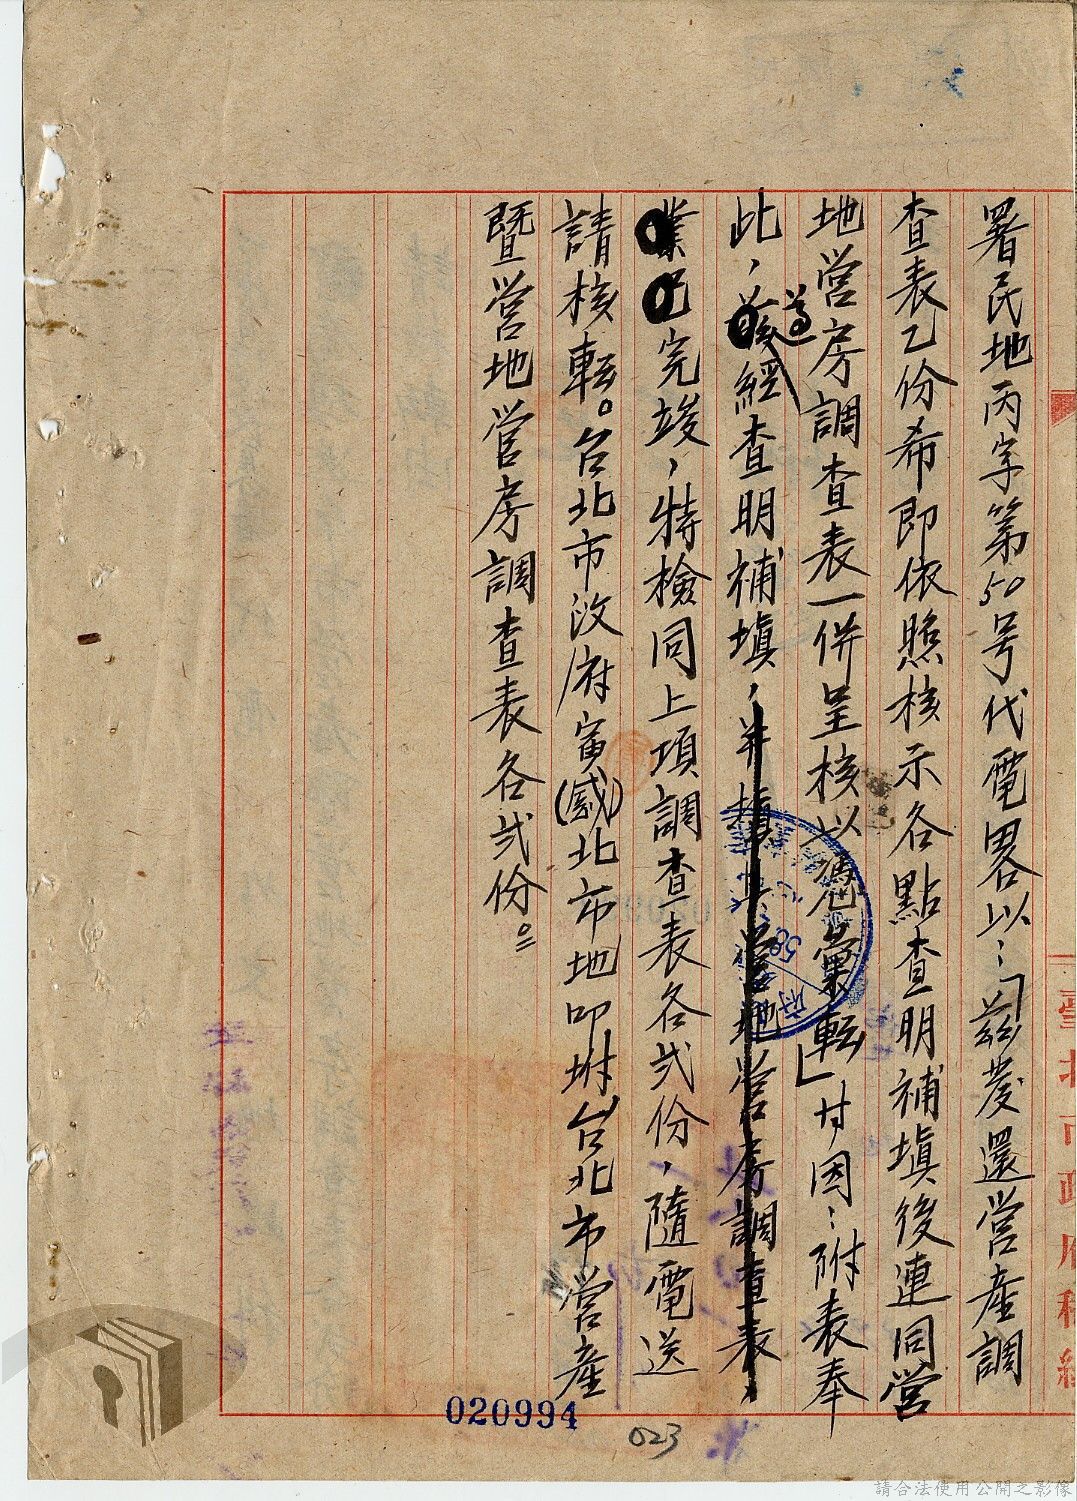 署民地丙字第50号代電畧以：「茲發還营產調
查表乙份希即依照核示各點查明補填後連同营
地营房調查表一併呈核以憑彙轉」廿因：附表奉
此，遵經查明補填，并填具营地营房調查表，
業已完竣，特檢同上項調查表各弍份，隨電送
請核轉。台北市政府寅(感)北市地叩坿台北市营產
暨营地营房調查表各弍份。
臺北市政府稿紙
020994
023
請合法使用公開之影像